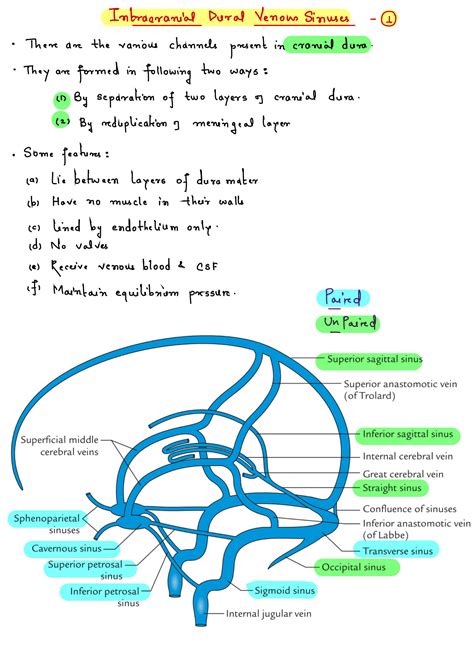 Intracranial Dural Venous Sinuses - ①
• There are the various channels present in cranial dura.
• They are formed in following two ways :
(1) By separation of two layers of cranial dura.
(2) By reduplication of meningeal layer
• Some features :
(a) Lie between layers of dura mater
(b) Have no muscle in their walls
(c) lined by endothelium only.
(d) No valves
(e) Receive venous blood & CSF
(f) Maintain equilibrium pressure.
Paired
UnPaired
Superior sagittal sinus
Superior anastomotic vein
(of Trolard)
Superficial middle
cerebral veins
Inferior sagittal sinus
Internal cerebral vein
Great cerebral vein
Straight sinus
Confluence of sinuses
Inferior anastomotic vein
(of Labbe)
Sphenoparietal
sinuses
Cavernous sinus
Transverse sinus
Superior petrosal
sinus
Occipital sinus
Inferior petrosal
sinus
Sigmoid sinus
Internal jugular vein